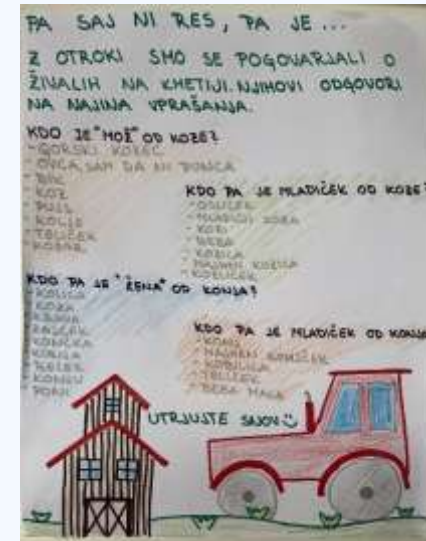 PA SAJ NI RES, PA JE...
Z OTROKI SMO SE POGOVARJALI O
ŽIVALIH NA KMETIJI. NJIHOVI ODGOVORI
NA NAJINA VPRAŠANJA.
KDO JE "MOŽ" OD KOZE?
- GORSKI KOZEC
- OVCA, SAM DA NI PUNCA
- BIK
- KOZ
- KOZLE
- TELIČEK
KDO PA JE MLADIČEK OD KOZE?
- OSLIČEK
- MLADIČI KOZA
- KOZI
- BEBA
- KOZICA
- MAJHEN KOZICA
- KOZLIČEK
KDO PA JE "ŽENA" OD KONJA?
- KOZA
- KRAVA
- KONJICA
- PONI
KDO PA JE MLADIČEK OD KONJA
- KONJ
- MAJHEN KONJIČEK
- KOBILICA
- TELIČEK
- BEBA MALA
UTRJUJTE SNOV